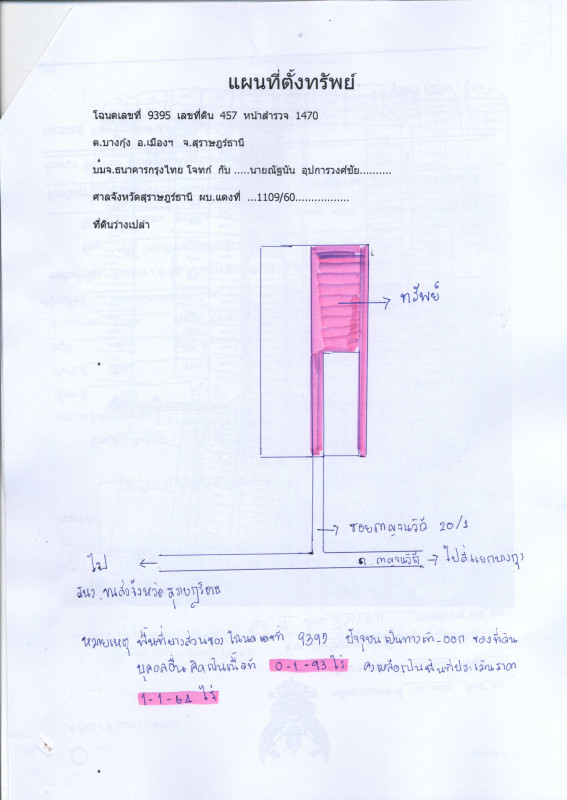 แผนที่ตั้งทรัพย์
โฉนดเลขที่ 9395 เลขที่ดิน 457 หน้าสำรวจ 1470
ต.บางกุ้ง อ.เมืองฯ จ.สุราษฎร์ธานี
บมจ.ธนาคารกรุงไทย โจทก์ กับ .....นายณัฐนัน อุปการวงศ์ชัย..........
ศาลจังหวัดสุราษฎร์ธานี ผบ.แดงที่ ...1109/60..................
ที่ดินว่างเปล่า
ทรัพย์
ซอยกาญจนวิถี 20/1
ไป
ถ กาญจนวิถี
ไปสี่แยกบางกุ้ง
ขนส่งจังหวัด
หมายเหตุ พื้นที่บางส่วนของโฉนดเลขที่ 9395 ปัจจุบันเป็นทางเข้า-ออก ของที่ดิน
บุคคลอื่น คิดเป็นเนื้อที่ 0-1-93 ไร่ คงเหลือเป็นพื้นที่ประเมินราคา
1-1-64 ไร่